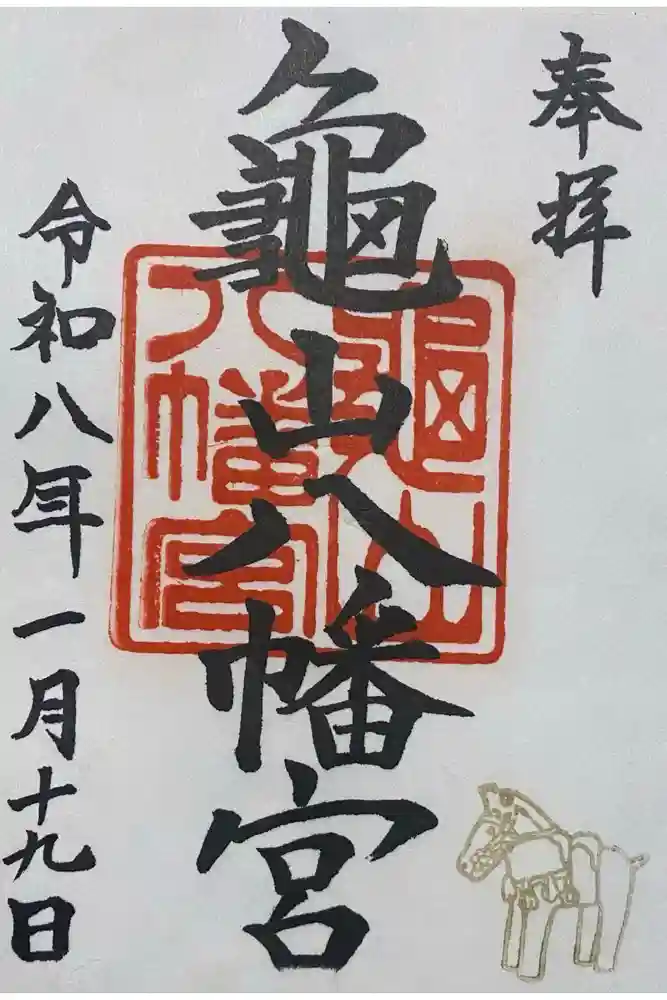 奉拝
龜山八幡宮
龜山八幡宮
令和八年一月十九日